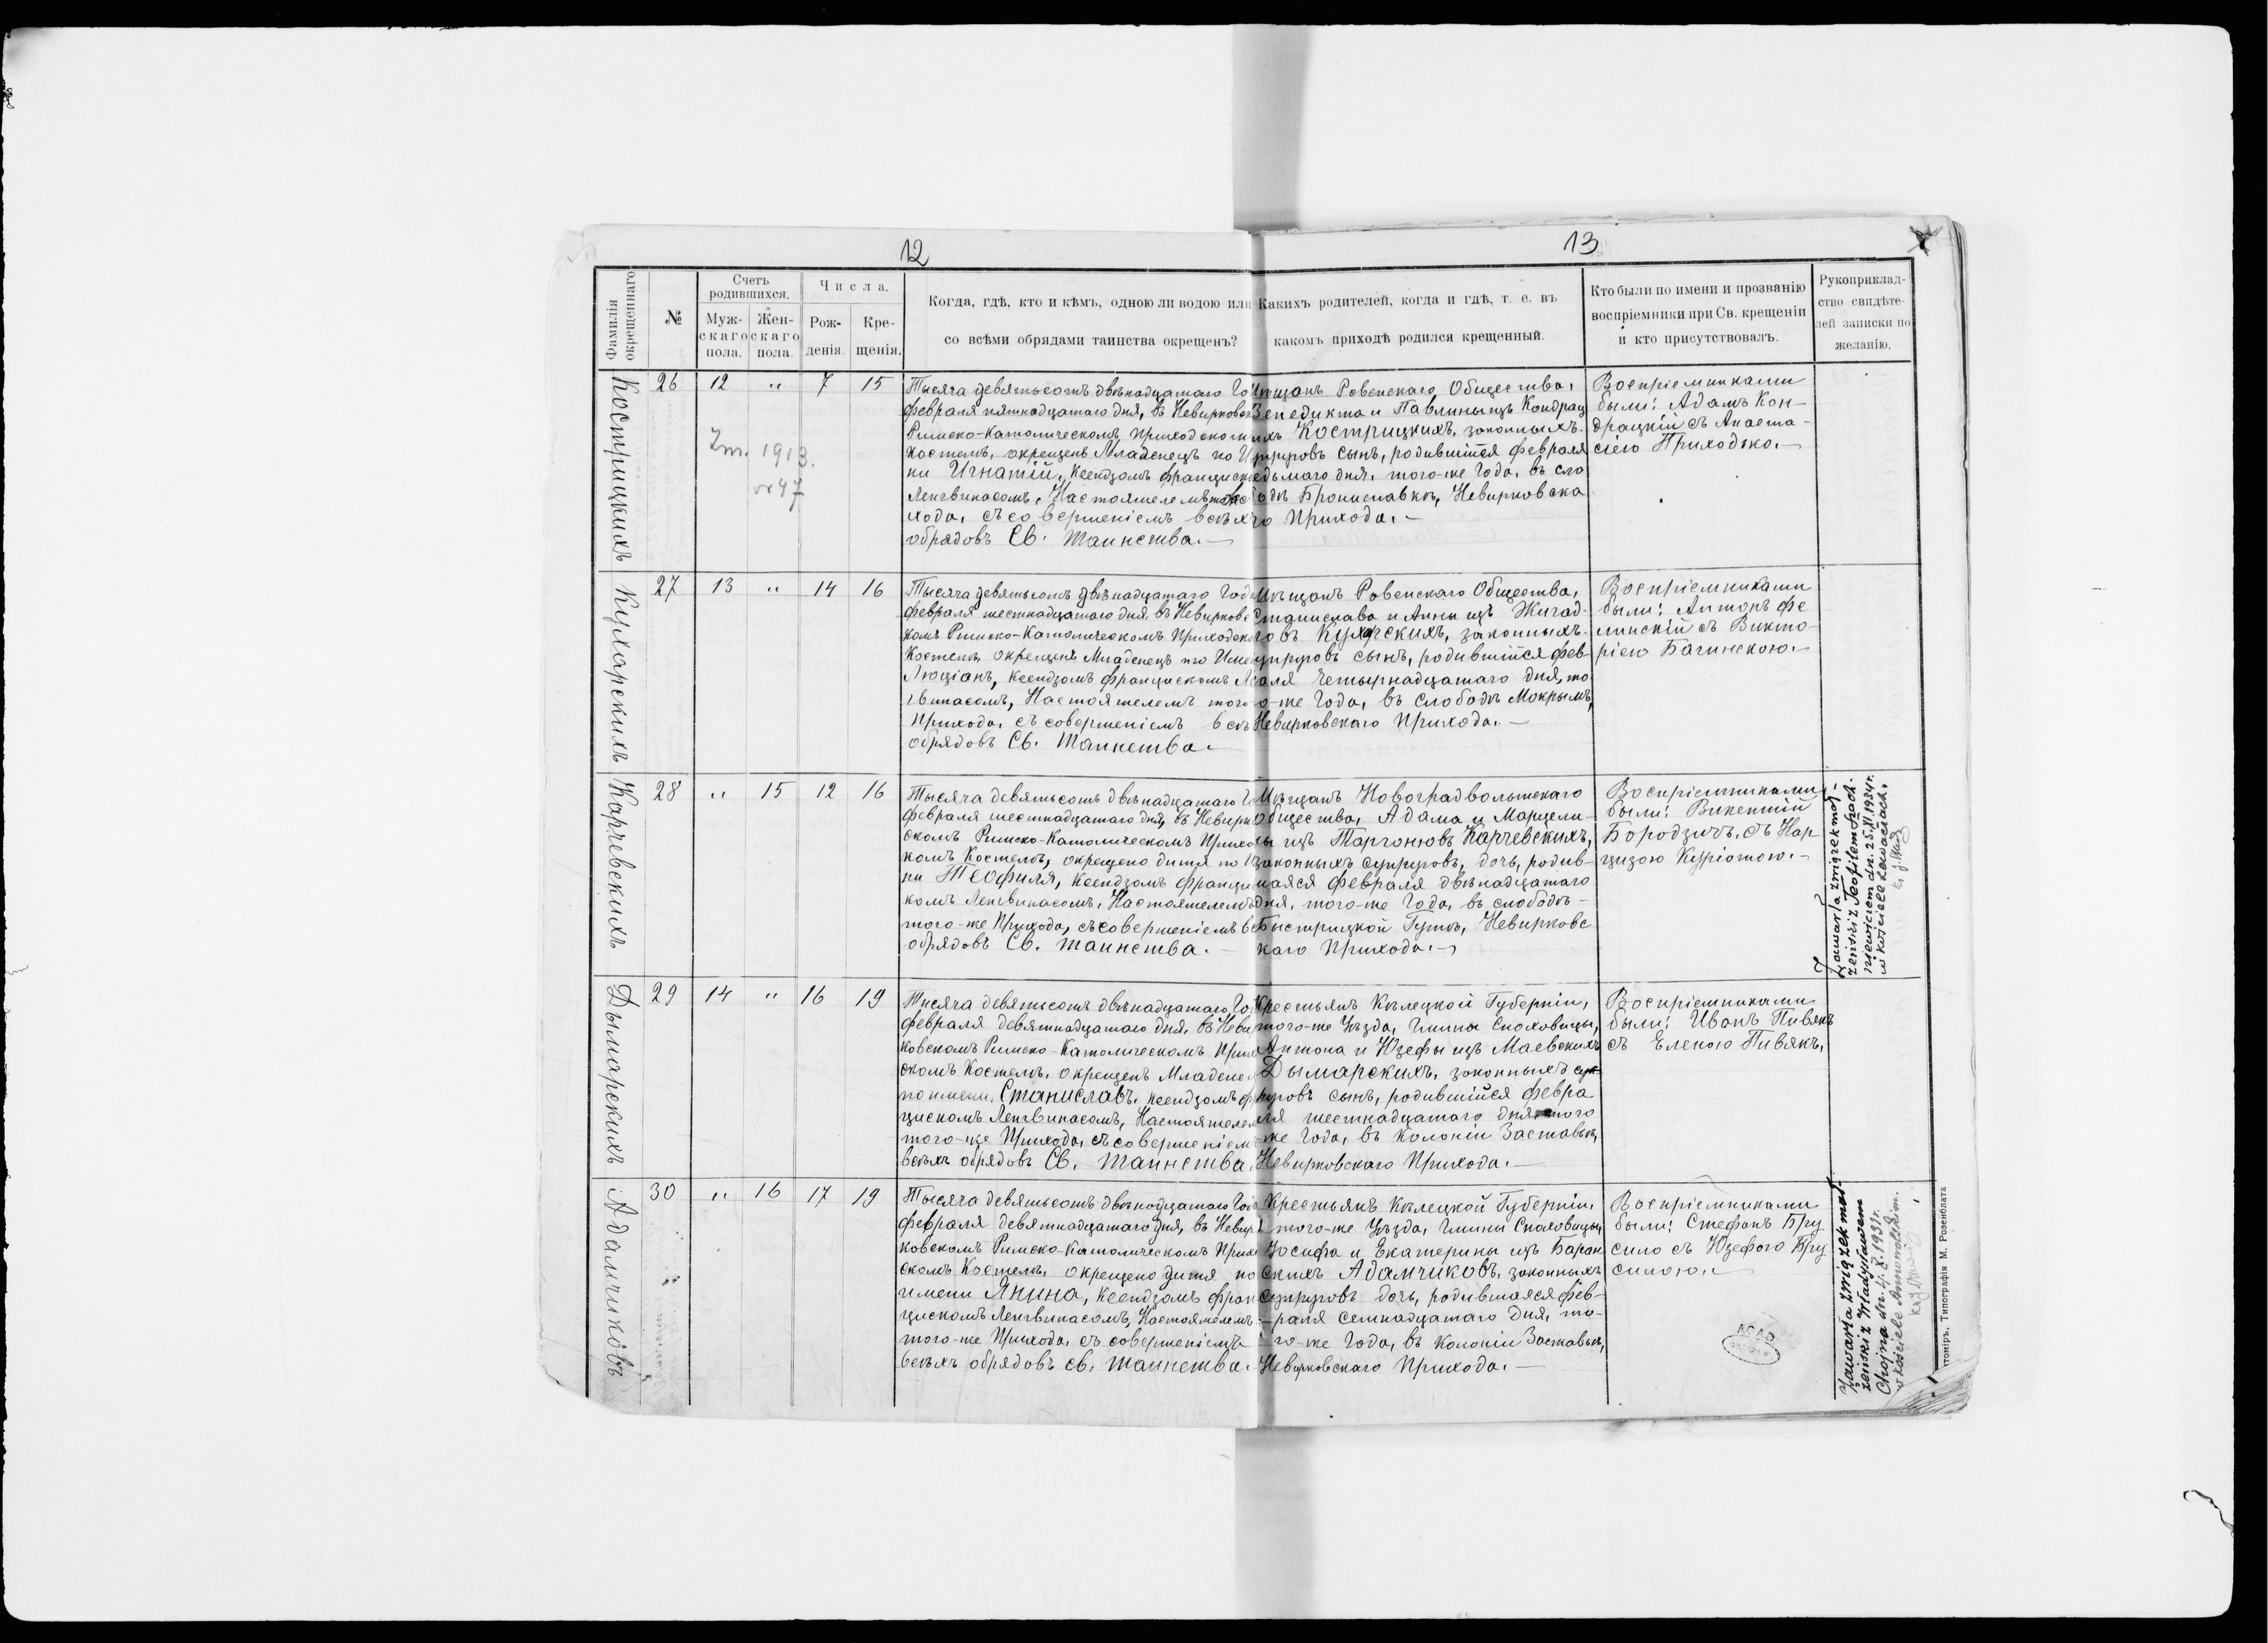 12
13
Фамилія окрещеннаго
№
Счетъ родившихся.
Муж-скаго пола.
Жен-скаго пола.
Числа.
Рож-денія.
Кре-щенія.
Когда, гдѣ, кто и кѣмъ, одною ли водою или
со всѣми обрядами таинства окрещенъ?
Какихъ родителей, когда и гдѣ, т. е. въ
какомъ приходѣ родился крещенный.
Кто были по имени и прозванію
воспріемники при Св. крещеніи
и кто присутствовалъ.
Рукоприклад-
ство свидѣте-
лей записки по
желанію.
Кострицкихъ
26 12 „ 7 15
Zm. 1913.
nr 47
Тысяча девятьсотъ двѣнадцатаго Го
февраля пятнадцатаго дня, въ Невирковск
Римско-Католическомъ Приходском
костелѣ, окрещенъ Младенецъ по И
ни Игнатій, Ксендзомъ Франциск
Ленгвинасомъ, Настоятелемъ
хода, съ совершеніемъ всѣх
обрядовъ Св. Таинства.—
мѣщанъ Ровенскаго Общества,
Бенедикта и Павлины изъ Кондрац
ихъ Кострицкихъ, законныхъ
супруговъ сынъ, родившійся февраля
седьмаго дня, того-же Года, въ сло
бодѣ Брониславкѣ, Невирковска
го Прихода.—
Воспріемниками
были: Адамъ Кон-
драцкій съ Анаста-
сіею Приходько.—
Кухарскихъ
27 13 „ 14 16
Тысяча девятьсотъ двѣнадцатаго Года
февраля шестнадцатаго дня, въ Невирковс
комъ Римско-Католическомъ Приходско
Костелѣ, окрещенъ Младенецъ по Име
Люціанъ, Ксендзомъ Францискомъ Ле
гвинасомъ, Настоятелемъ того
Прихода, съ совершеніемъ всѣ
обрядовъ Св. Таинства.—
Мѣщанъ Ровенскаго Общества,
Станислава и Анны изъ Жигад-
овъ Кухарскихъ, законныхъ
супруговъ сынъ, родившійся фев-
раля четырнадцатаго дня, то
го-же Года, въ слободѣ Мокрымъ,
Невирковскаго Прихода.—
Воспріемниками
были: Анторъ Фе
линскій съ Викто-
ріею Багинскою.—
Карчевскихъ
28 „ 15 12 16
Тысяча девятьсотъ двѣнадцатаго Го
февраля шестнадцатаго дня, въ Невирков
скомъ Римско-Католическомъ Приходс
комъ Костелѣ, окрещено дитя по И
ни Теофиля, Ксендзомъ Францис
комъ Ленгвинасомъ, Настоятелемъ
того-же Прихода, съ совершеніемъ в
обрядовъ Св. Таинства.—
Мѣщанъ Новоградволынскаго
Общества, Адама и Марцели-
ны изъ Таргонювъ Карчевскихъ,
законныхъ супруговъ, дочь, родив-
шаяся февраля двѣнадцатаго
дня, того-же Года, въ слободѣ-
Быстрицкой Гутѣ, Невирковс
каго Прихода.—
Воспріемниками
были: Викентій
Бородзичъ, съ Нар
цизою Курріотою.—
Zawarła związek mał-
żeński z Teofilem Szach-
niewiczem dn. 25.XI.1934r.
w kościele Lewaczach.
Дымарскихъ
29 14 „ 16 19
Тисяча девятьсотъ двѣнадцатаго Го
февраля девятнадцатаго дня, въ Неви
ковскомъ Римско-Католическомъ Прих
скомъ Костелѣ, окрещенъ Младене
по имени Станиславъ, ксендзомъ ф
цискомъ Ленгвинасомъ, Настоятелем
того-же Прихода, съ совершеніем
всѣхъ обрядовъ Св. Таинства.
Крестьянъ Кѣлецкой Губерніи,
того-же Уѣзда, Гмины Снаховицы,
Антона и Юзефы изъ Маевскихъ
Дымарскихъ, законныхъ суп
руговъ сынъ, родившійся февра
ля шестнадцатаго дня, того
же Года, въ Колоніи Заставьѣ,
Невирковскаго Прихода.—
Воспріемниками
были: Иванъ Пивякъ
съ Еленою Пивякъ.
Адамчиковъ
30 „ 16 17 19
Тысяча девятьсотъ двѣнадцатаго Года
февраля девятнадцатаго дня, въ Невир
ковскомъ Римско-Католическомъ Прих
скомъ Костелѣ, окрещено дитя по
имени Янина, Ксендзомъ Фран
цискомъ Ленгвинасомъ, Настоятелемъ
того-же Прихода, съ совершеніемъ
всѣхъ обрядовъ Св. Таинства.
Крестьянъ Кѣлецкой Губерніи,
того-же Уѣзда, Гмины Снаховицы,
Іосифа и Екатерины изъ Баран
скихъ Адамчиковъ, законныхъ
супруговъ дочь, родившаяся фев-
раля семнадцатаго дня, то-
го-же Года, въ Колоніи Заставьѣ,
Невирковскаго Прихода.—
Воспріемниками
были: Стефанъ Бру
сило съ Юзефою Бру
силою.—
Zawarła związek mał-
żeński z Władysławem
Chojna dn. 4.X.1931r.
w kościele Annowolskim.
томіръ, Типографія М. Розенблата